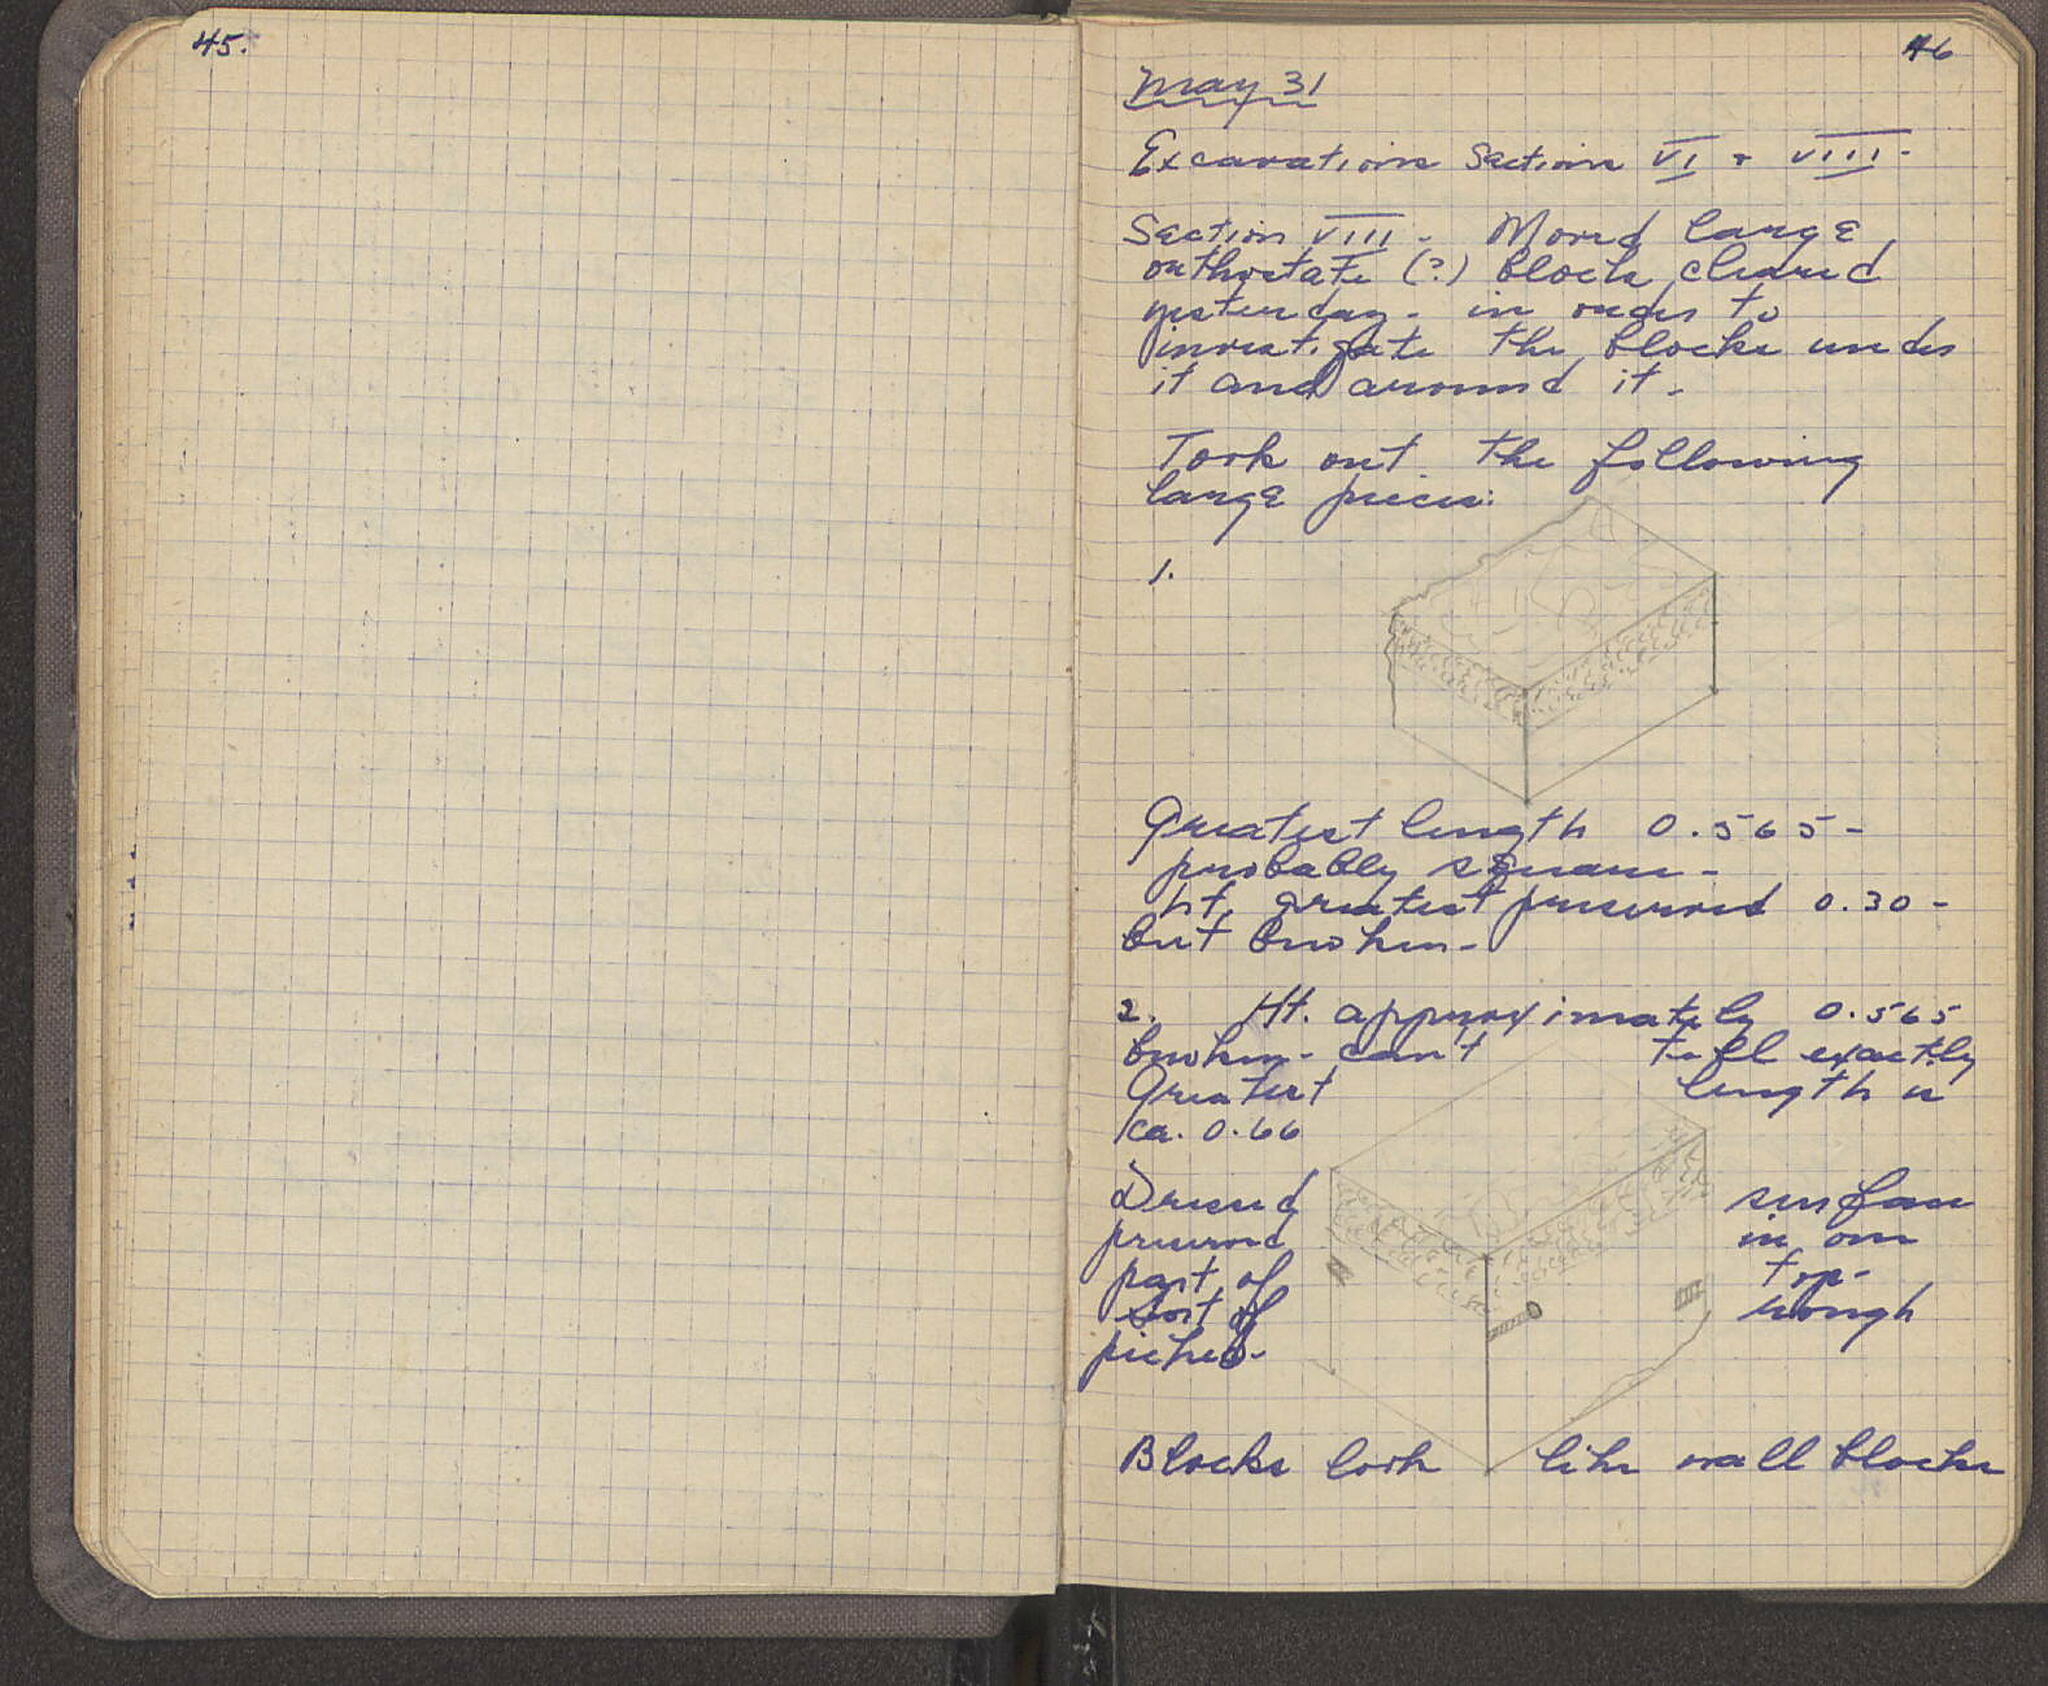 45.
46
May 31
Excavations Sections VI + VIII.
Section VIII - Moved large
orthostate (?) block cleared
yesterday - in order to
investigate the blocks under
it and around it -
Took out the following
large pieces:
1.
Greatest length 0.565 -
probably square -
ht. greatest preserved 0.30 -
but broken -
2. Ht. approximately 0.565
broken - can't tell exactly
Greatest length is
ca. 0.66
Dressed surface
preserved in one
part of top -
Sort of rough
picked -
Blocks look like wall blocks